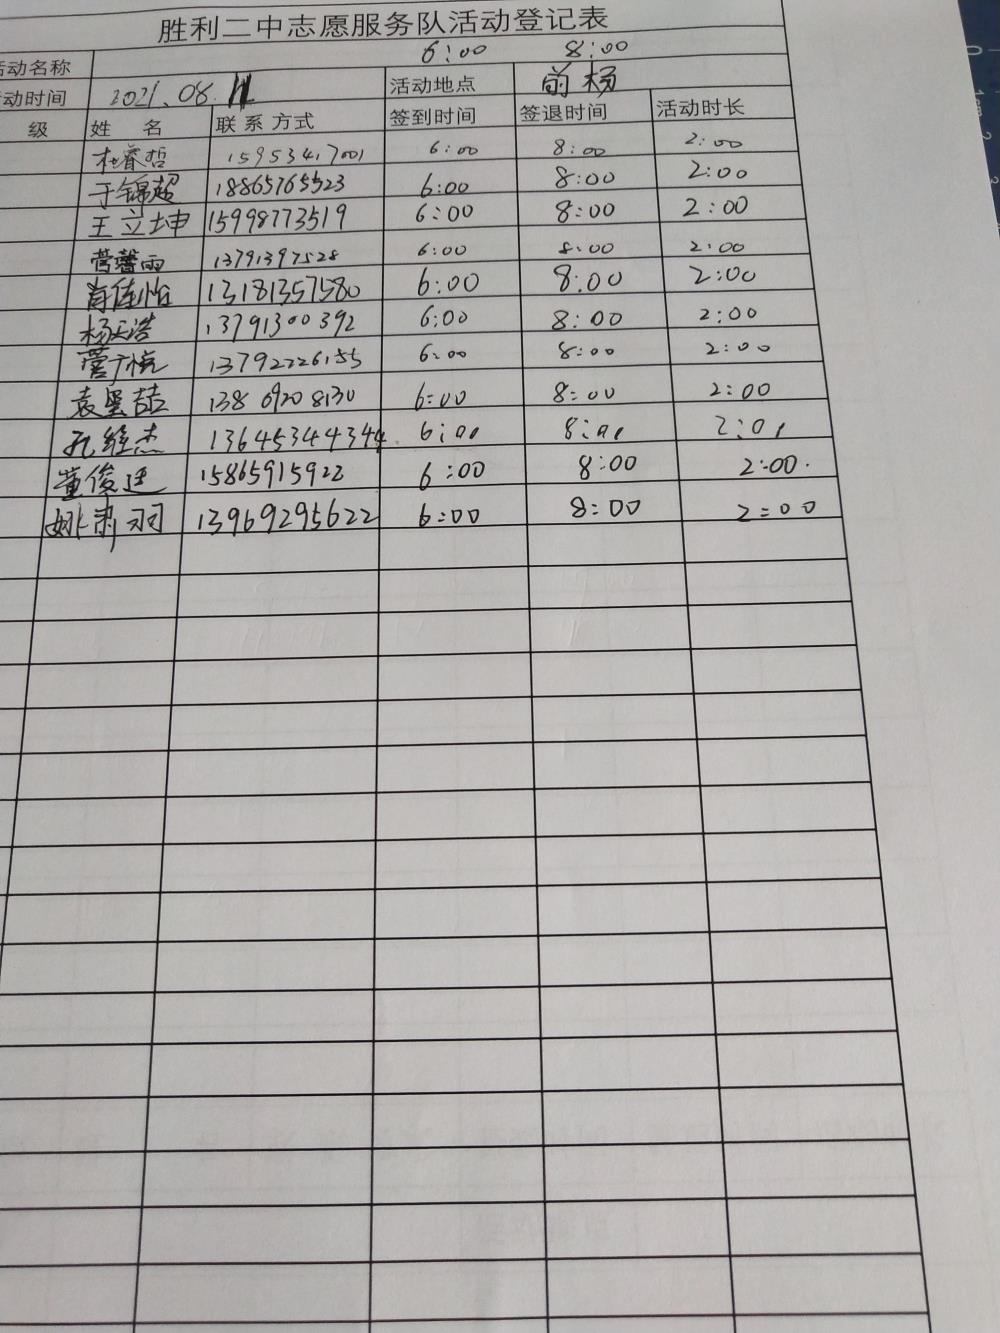 胜利二中志愿服务队活动登记表
活动名称 6:00 8:00
动时间 2021.08.11 活动地点 前杨
级 姓 名 联系方式 签到时间 签退时间 活动时长
杜睿哲 15953417001 6:00 8:00 2:00
于锦超 18865765523 6:00 8:00 2:00
王立坤 15998773519 6:00 8:00 2:00
营馨雨 13791397528 6:00 8:00 2:00
肖佳怡 13181357580 6:00 8:00 2:00
杨天浩 13791300392 6:00 8:00 2:00
营广杭 13792226155 6:00 8:00 2:00
袁呈喆 13869208130 6:00 8:00 2:00
孔维杰 13645344344 6:00 8:00 2:00
董俊廷 15865915922 6:00 8:00 2:00.
姚肃羽 13969295622 6:00 8:00 2=00